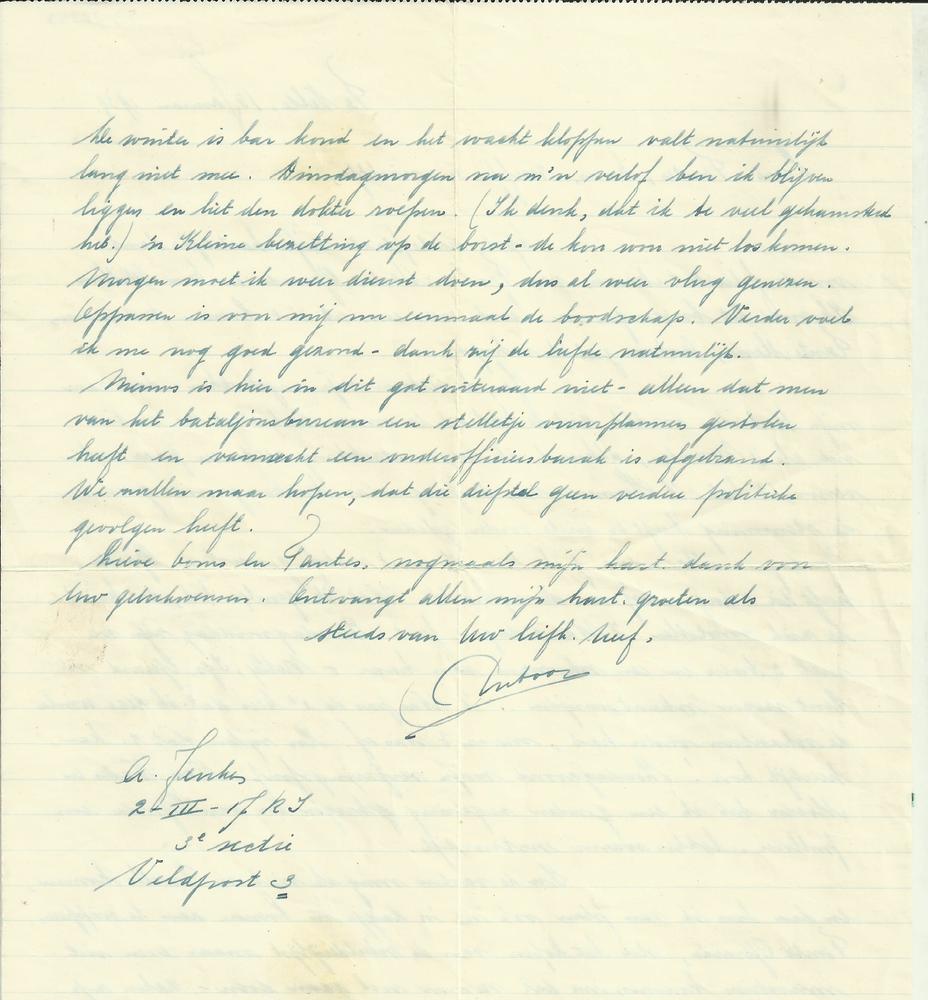 De winter is bar koud en het wacht kloppen valt natuurlijk
lang niet mee. Dinsdagmorgen na m'n verlof ben ik blijven
liggen en liet den dokter roepen. (Ik denk, dat ik te veel gehamsterd
heb.) 'n Kleine bezetting op de borst - de kou wou niet loskomen.
Morgen moet ik weer dienst doen, dus al weer vlug genezen.
Oppassen is voor mij nu eenmaal de boodschap. Verder voel
ik me nog goed gezond - dank zij de liefde natuurlijk.
Nieuws is hier in dit gat uiteraard niet - alleen dat men
van het bataljonsbureau een stelletje vuurplannen gestolen
heeft en vannacht een onderofficiersbarak is afgebrand.
We zullen maar hopen, dat die diefstal geen verdere politieke
gevolgen heeft.
Lieve Ooms en Tantes, nogmaals mijn hart. dank voor
Uw gelukwensen. Ontvangt allen mijn hart. groeten als
steeds van Uw liefh. Neef,
A.
2-III-17 R I
3e sectie
Veldpost 3